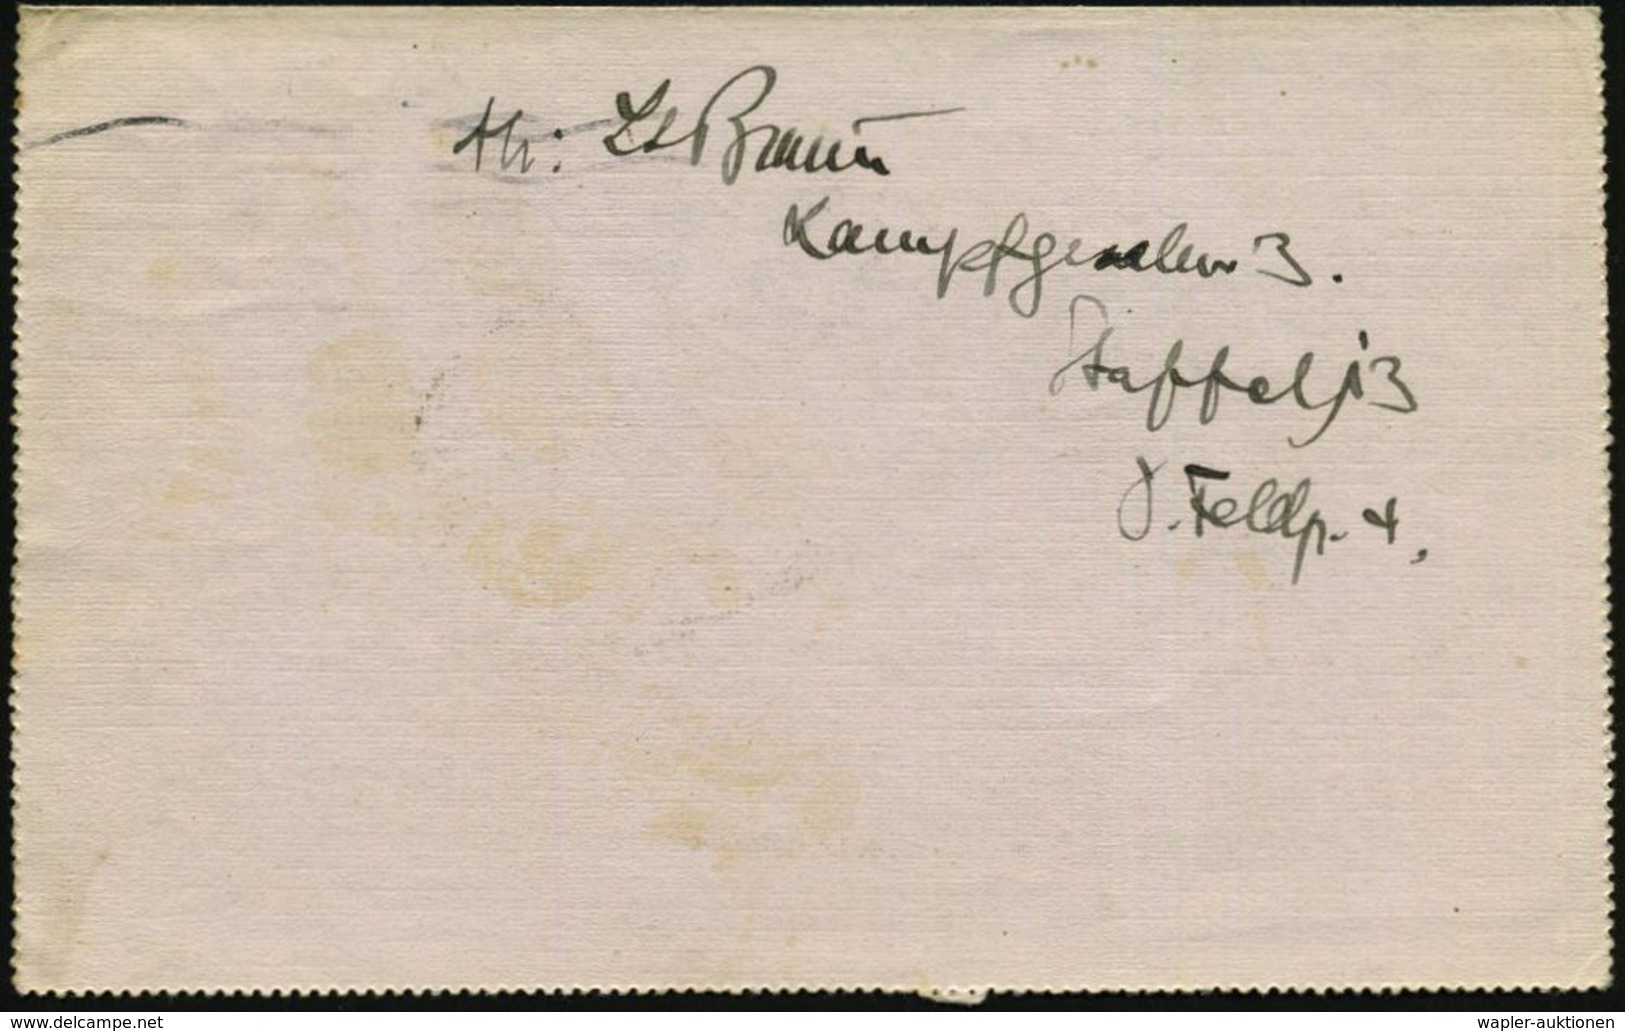 Ab: Lt Braun
Kampfgeschw 3.
Staffel 13
d. Feldp. 4,
www.delcampe.net
wapler-auktionen